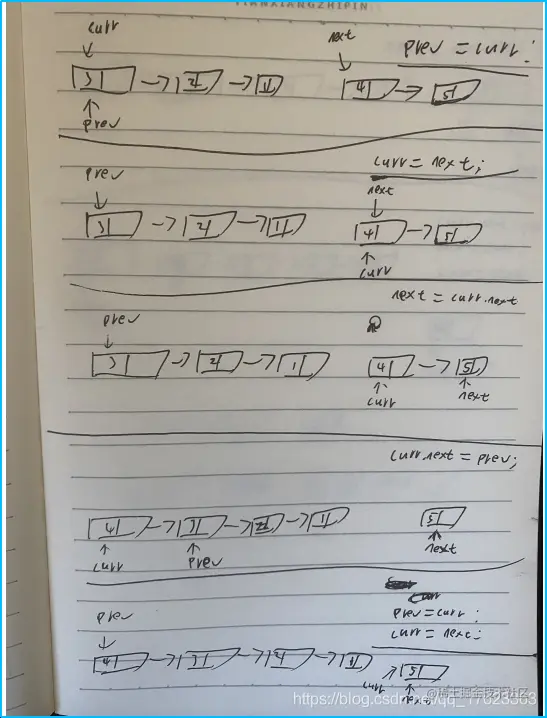 TIANXIANGZHIPIN
curr
next
prev = curr;
3 → 2 → 1 4 → 5
prev
prev
curr = next;
next
3 → 2 → 1 4 → 5
curr
next = curr.next
prev
3 → 2 → 1 4 → 5
curr next
curr.next = prev;
4 → 3 → 2 → 1 5
curr prev next
curr
prev = curr;
prev
curr = next;
4 → 3 → 2 → 1 5
curr
next
https://blog.csdn.net/qq_17023363
@稀土掘金技术社区